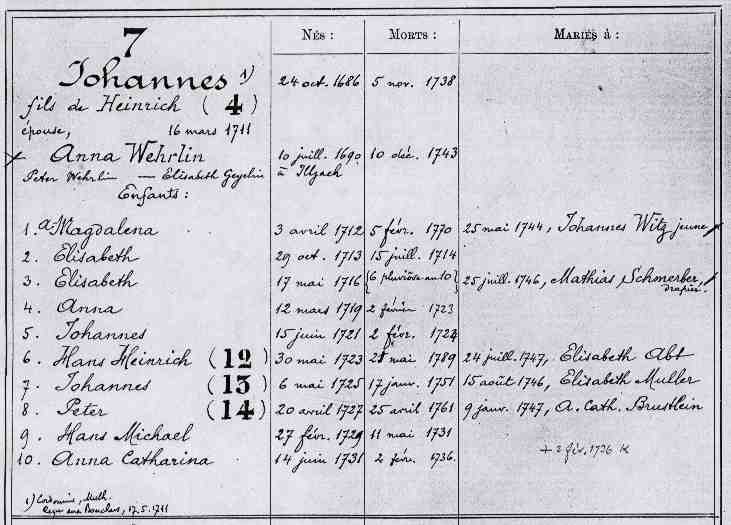 7 NÉS : MORTS : MARIÉS à :
Johannes 1) 24 oct. 1686 5 nov. 1738
fils de Heinrich (4)
épouse, 16 mars 1711
Anna Wehrlin 10 juill. 1690 10 déc. 1743
Peter Wehrlin — Elisabeth Geyelin à Illzach
Enfants :
1. a. Magdalena 3 avril 1712 5 févr. 1770 25 mai 1744, Johannes Witz jeune
2. Elisabeth 29 oct. 1713 15 juill. 1714
3. Elisabeth 17 mai 1716 {6 pluviôse an 10} 25 juill. 1746, Mathias Schmerber,
drapier.
4. Anna 12 mars 1719 2 février 1723
5. Johannes 15 juin 1721 2 févr. 1724
6. Hans Heinrich (12) 30 mai 1723 mai 1789 24 juill. 1747, Elisabeth Abt
7. Johannes (13) 6 mai 1725 17 janv. 1751 15 août 1746, Elisabeth Muller
8. Peter (14) 20 avril 1727 25 avril 1761 9 janv. 1747, A. Cath. Brustlein
9. Hans Michael 27 févr. 1729 11 mai 1731
10. Anna Catharina 14 juin 1731 2 févr. 1736. + 2 fév. 1736 K
1) Cordonnier, Mulh.
17.5.1711